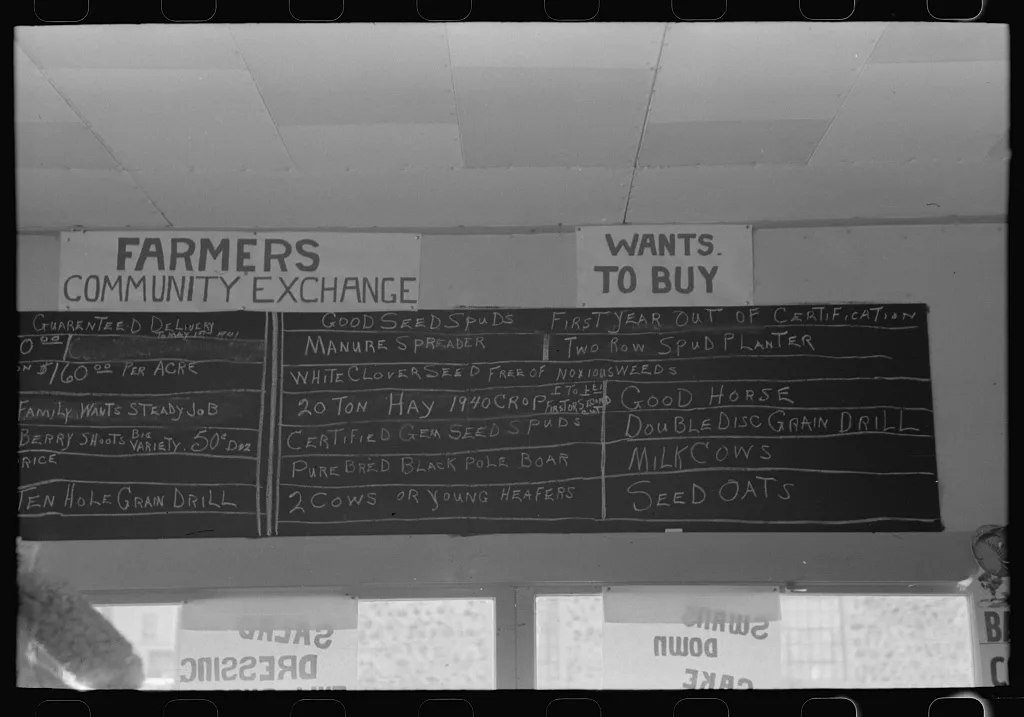 FARMERS
COMMUNITY EXCHANGE
WANTS.
TO BUY
GUARENTEED DELIVERY
TO MAY 1st 1941
0 00
$160 00 PER ACRE
FAMILY WANTS STEADY JOB
BERRY SHOOTS BIG VARIETY. 50¢ DOZ
RICE
TEN HOLE GRAIN DRILL
GOOD SEED SPUDS FIRST YEAR OUT OF CERTIFICATION
MANURE SPREADER TWO ROW SPUD PLANTER
WHITE CLOVER SEED FREE OF NOXIOUS WEEDS
20 TON HAY 1940 CROP
CERTIFIED GEM SEED SPUDS
PURE BRED BLACK POLE BOAR
2 COWS OR YOUNG HEAFERS
GOOD HORSE
DOUBLE DISC GRAIN DRILL
MILK COWS
SEED OATS
SALAD
DRESSING
SWANS
DOWN
CAKE